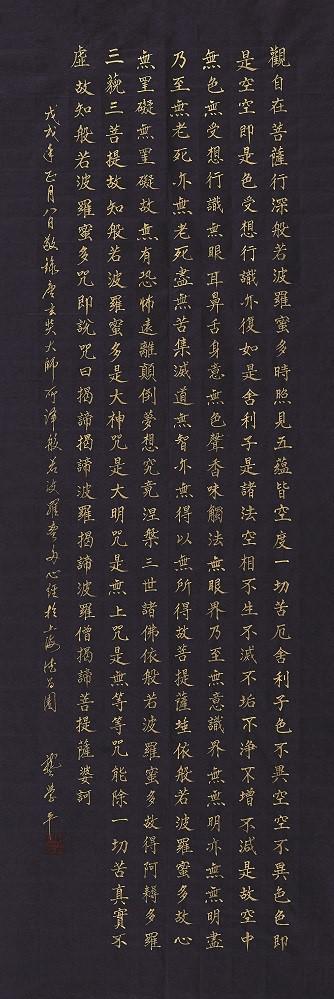 觀自在菩薩行深般若波羅蜜多時照見五蘊皆空度一切苦厄舍利子色不異空空不異色色即
是空空即是色受想行識亦復如是舍利子是諸法空相不生不滅不垢不净不增不減是故空中
無色無受想行識無眼耳鼻舌身意無色聲香味觸法無眼界乃至無意識界無無明亦無無明盡
乃至無老死亦無老死盡無苦集滅道無智亦無得以無所得故菩提薩埵依般若波羅蜜多故心
無罣礙無罣礙故無有恐怖遠離顛倒夢想究竟涅槃三世諸佛依般若波羅蜜多故得阿耨多羅
三藐三菩提故知般若波羅蜜多是大神咒是大明咒是無上咒是無等等咒能除一切苦真實不
虛故知般若波羅蜜多咒即說咒曰揭諦揭諦波羅揭諦波羅僧揭諦菩提薩婆訶
戊戌年正月八日敬錄唐玄奘大師所譯般若波羅蜜多心經於上海園 龔學平